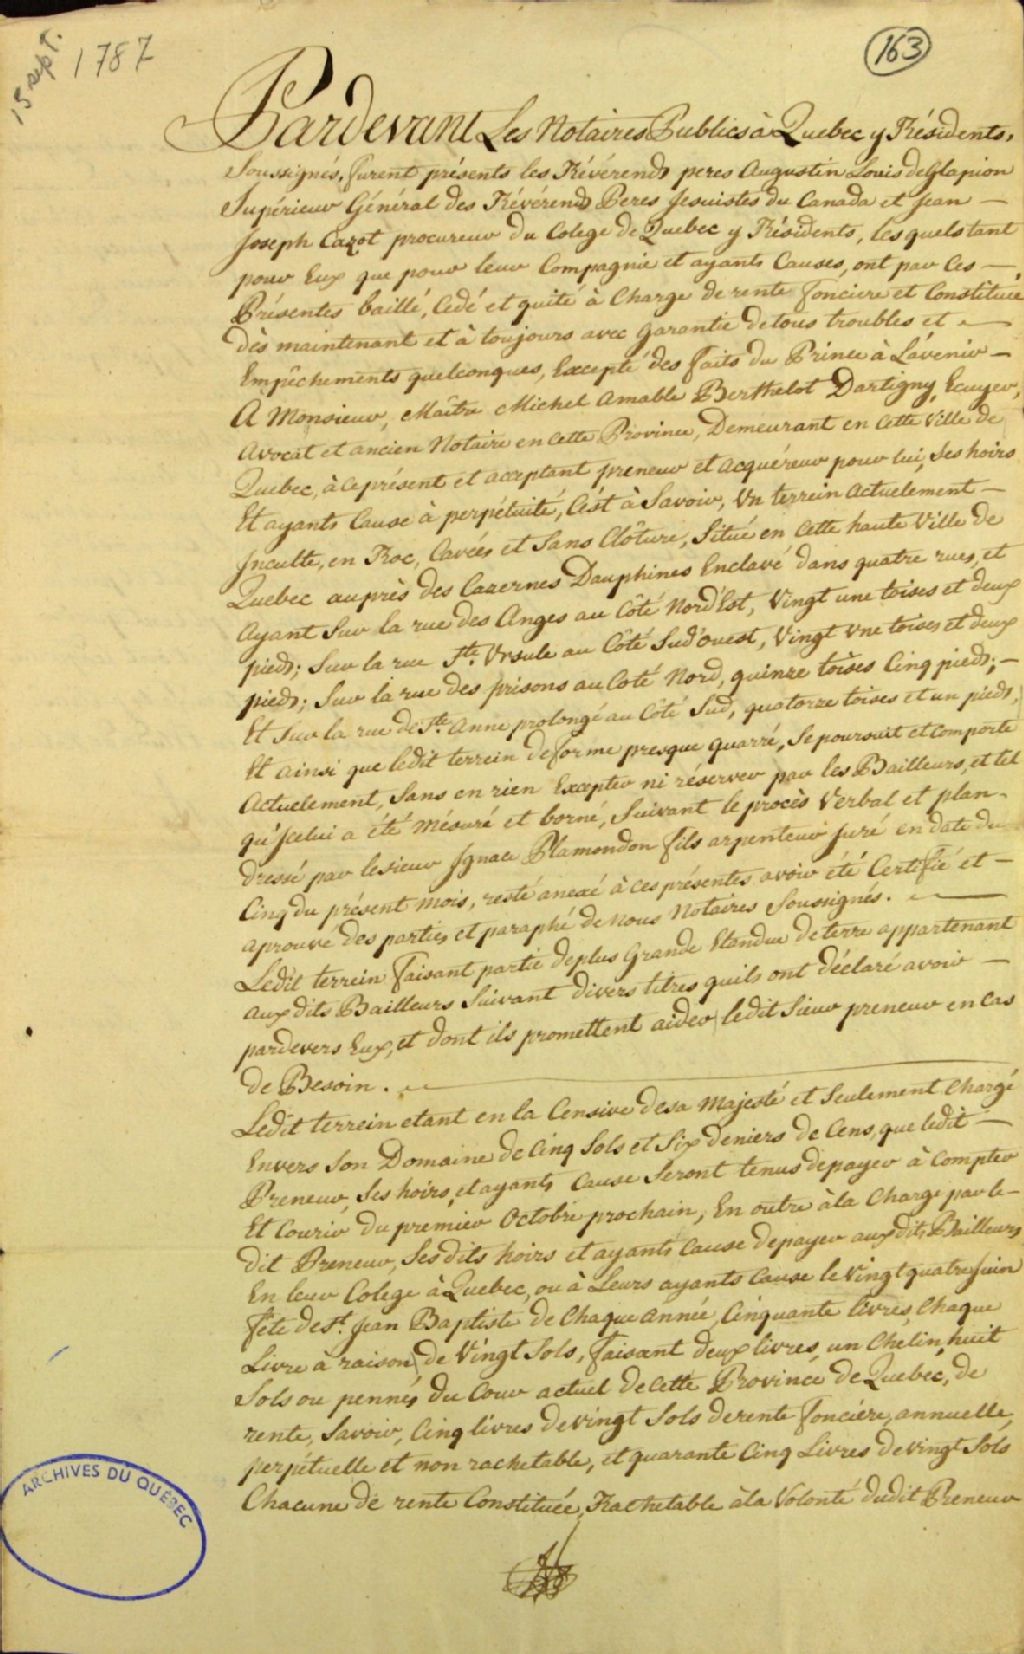 15 sept. 1787
163
Pardevant Les Notaires Publics à Quebec y Résidents,
Soussignés, furent présents les Révérends peres Augustin Louis de Glapion
Supérieur Général des Révérends Peres Jesuistes du Canada et Jean —
Joseph Cazot procureur du Colege de Quebec y Résidents, les quels tant
pour Eux que pour leur Compagnie et ayants Causes, ont par Ces —
Présentes baillé, Cedé et quité à Charge de rente fonciere et Constituée
dès maintenant et à toujours avec garantie de tous troubles et —
Empêchements quelconques, Excepté des faits du Prince à L'avenir —
A Monsieur, Maître Michel Amable Berthelot Dartigny, Ecuyer,
Avocat et ancien Notaire en cette Province, Demeurant en Cette Ville de
Quebec, à ce présent et acceptant preneur et acquéreur pour lui, Ses hoirs
Et ayants Cause à perpétuité, C'est à Savoir, Un terrein actuelement —
Inculte, en Roc, Cavées et Sans Clôture, Situé en Cette haute Ville de
Quebec auprès des Cazernes Dauphines Enclavé dans quatre rues, et
Ayant Sur la rue des Anges au Côté Nord'Est, Vingt une toises et deux
pieds; Sur la rue Ste. Ursule au Côté Sud'ouest, Vingt Une toises et deux
pieds; Sur la rue des prisons au Coté Nord, quinze toises Cinq pieds; —
Et Sur la rue de Ste. Anne prolongé au Côté Sud, quatorze toises et un pieds,
Et ainsi que ledit terrein de forme presque quarré, Se poursuit et comporte
Actuelement, Sans en rien Excepter ni réserver par les Bailleurs, et tel
qu'Jcelui a été mésuré et borné, Suivant le procès Verbal et plan.
dressé par le sieur Ignace Plamondon fils arpenteur Juré en date du
Cinq du présent mois, resté anexé à ces présentes avoir été Certifié et —
aprouvé des parties et paraphé de nous Notaires Soussignés. —
Ledit terrein faisant partie de plus grande Etandue de terre appartenant
aux dits Bailleurs Suivant divers titres quils ont déclaré avoir —
pardevers Eux, et dont ils promettent aider ledit Sieur preneur en Cas
de Besoin. —
Ledit terrein etant en la Censive de sa Majesté et Seulement Chargé
Envers Son Domaine de Cinq Sols et Six deniers de Cens, que ledit —
Preneur, Ses hoirs, et ayants Cause Seront tenus de payer à Compter
Et Courir du premier Octobre prochain, En outre à la Charge par le —
dit Preneur, Ses dits hoirs et ayants Cause de payer aux dits Bailleurs
En leur Colege à Quebec, ou à Leurs ayants Cause le Vingt quatre Juin
fête de St. Jean Baptiste de Chaque Année, Cinquante livres, Chaque
Livre à raison de Vingt Sols, faisant deux livres, un Chelin, huit
Sols ou pennés du Cour actuel de Cette Province de Quebec, de
rente, Savoir, Cinq livres de vingt Sols de rente fonciere, annuelle,
perpétuelle et non rachetable, et quarante Cinq Livres de vingt Sols
Chacune de rente Constituée, Rachetable à la Volonté dudit Preneur
ARCHIVES DU QUÉBEC